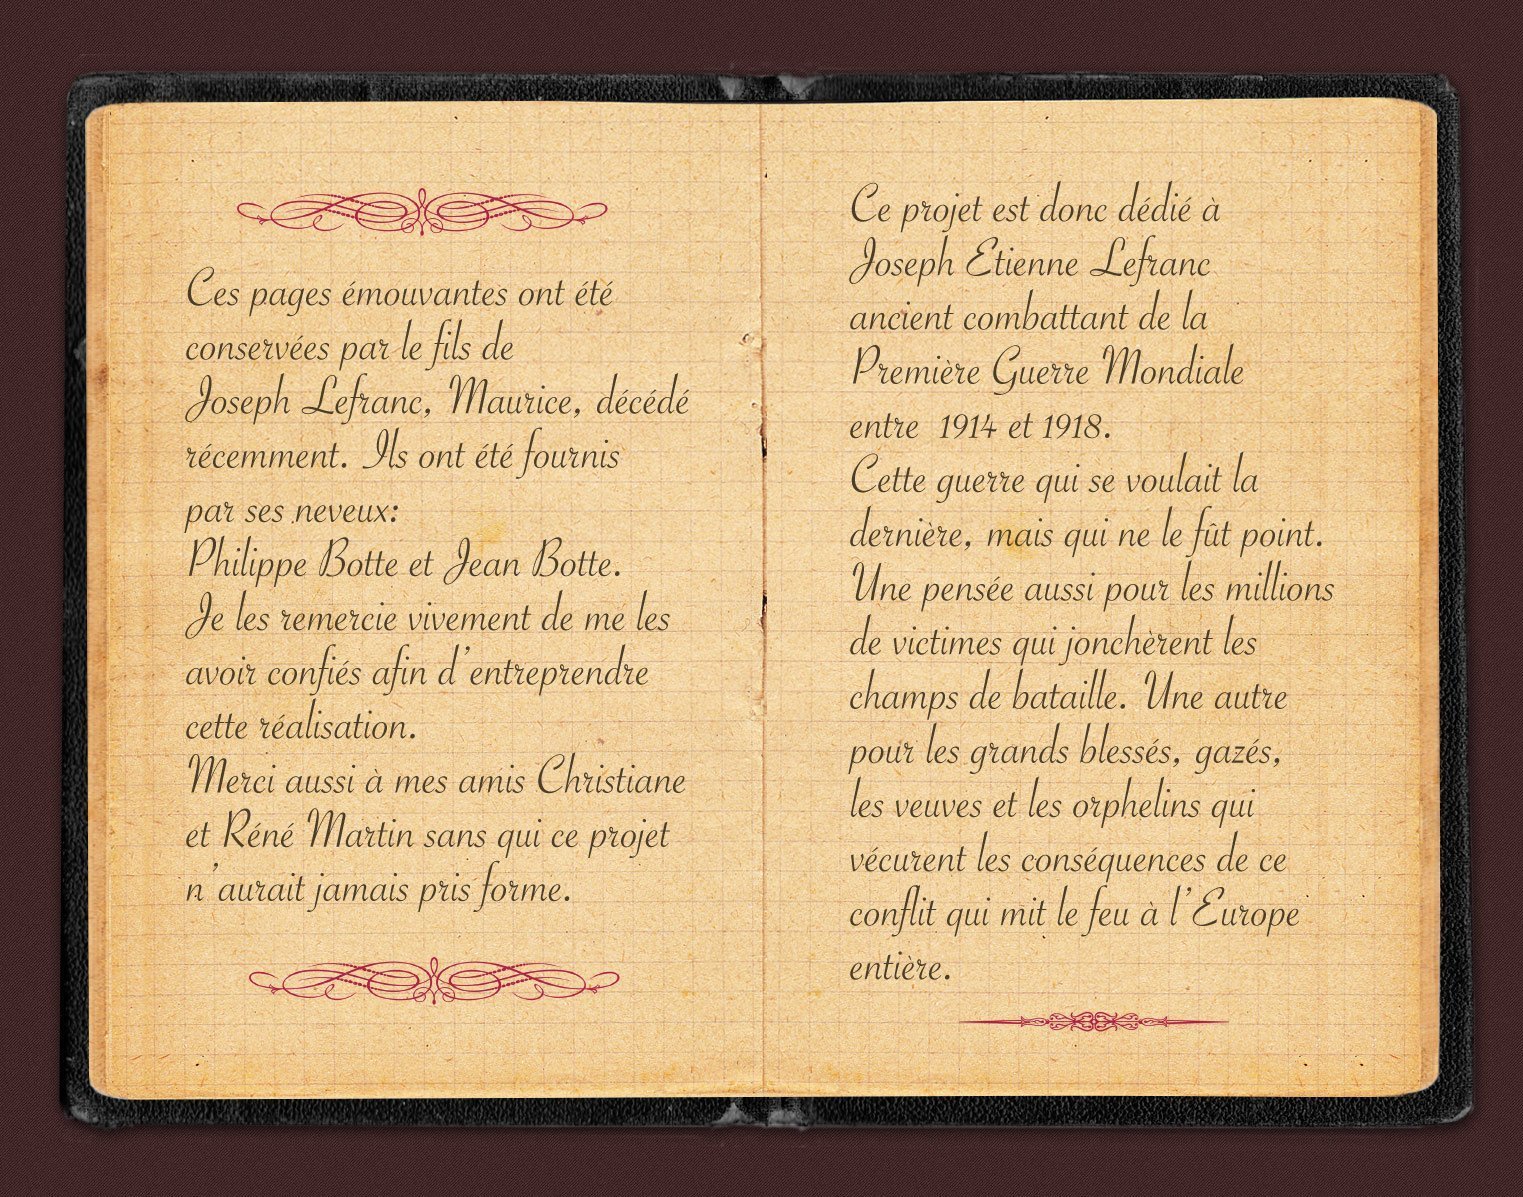 Ces pages émouvantes ont été
conservées par le fils de
Joseph Lefranc, Maurice, décédé
récemment. Ils ont été fournis
par ses neveux:
Philippe Botte et Jean Botte.
Je les remercie vivement de me les
avoir confiés afin d'entreprendre
cette réalisation.
Merci aussi à mes amis Christiane
et Réné Martin sans qui ce projet
n'aurait jamais pris forme.
Ce projet est donc dédié à
Joseph Etienne Lefranc
ancient combattant de la
Première Guerre Mondiale
entre 1914 et 1918.
Cette guerre qui se voulait la
dernière, mais qui ne le fût point.
Une pensée aussi pour les millions
de victimes qui jonchèrent les
champs de bataille. Une autre
pour les grands blessés, gazés,
les veuves et les orphelins qui
vécurent les conséquences de ce
conflit qui mit le feu à l'Europe
entière.